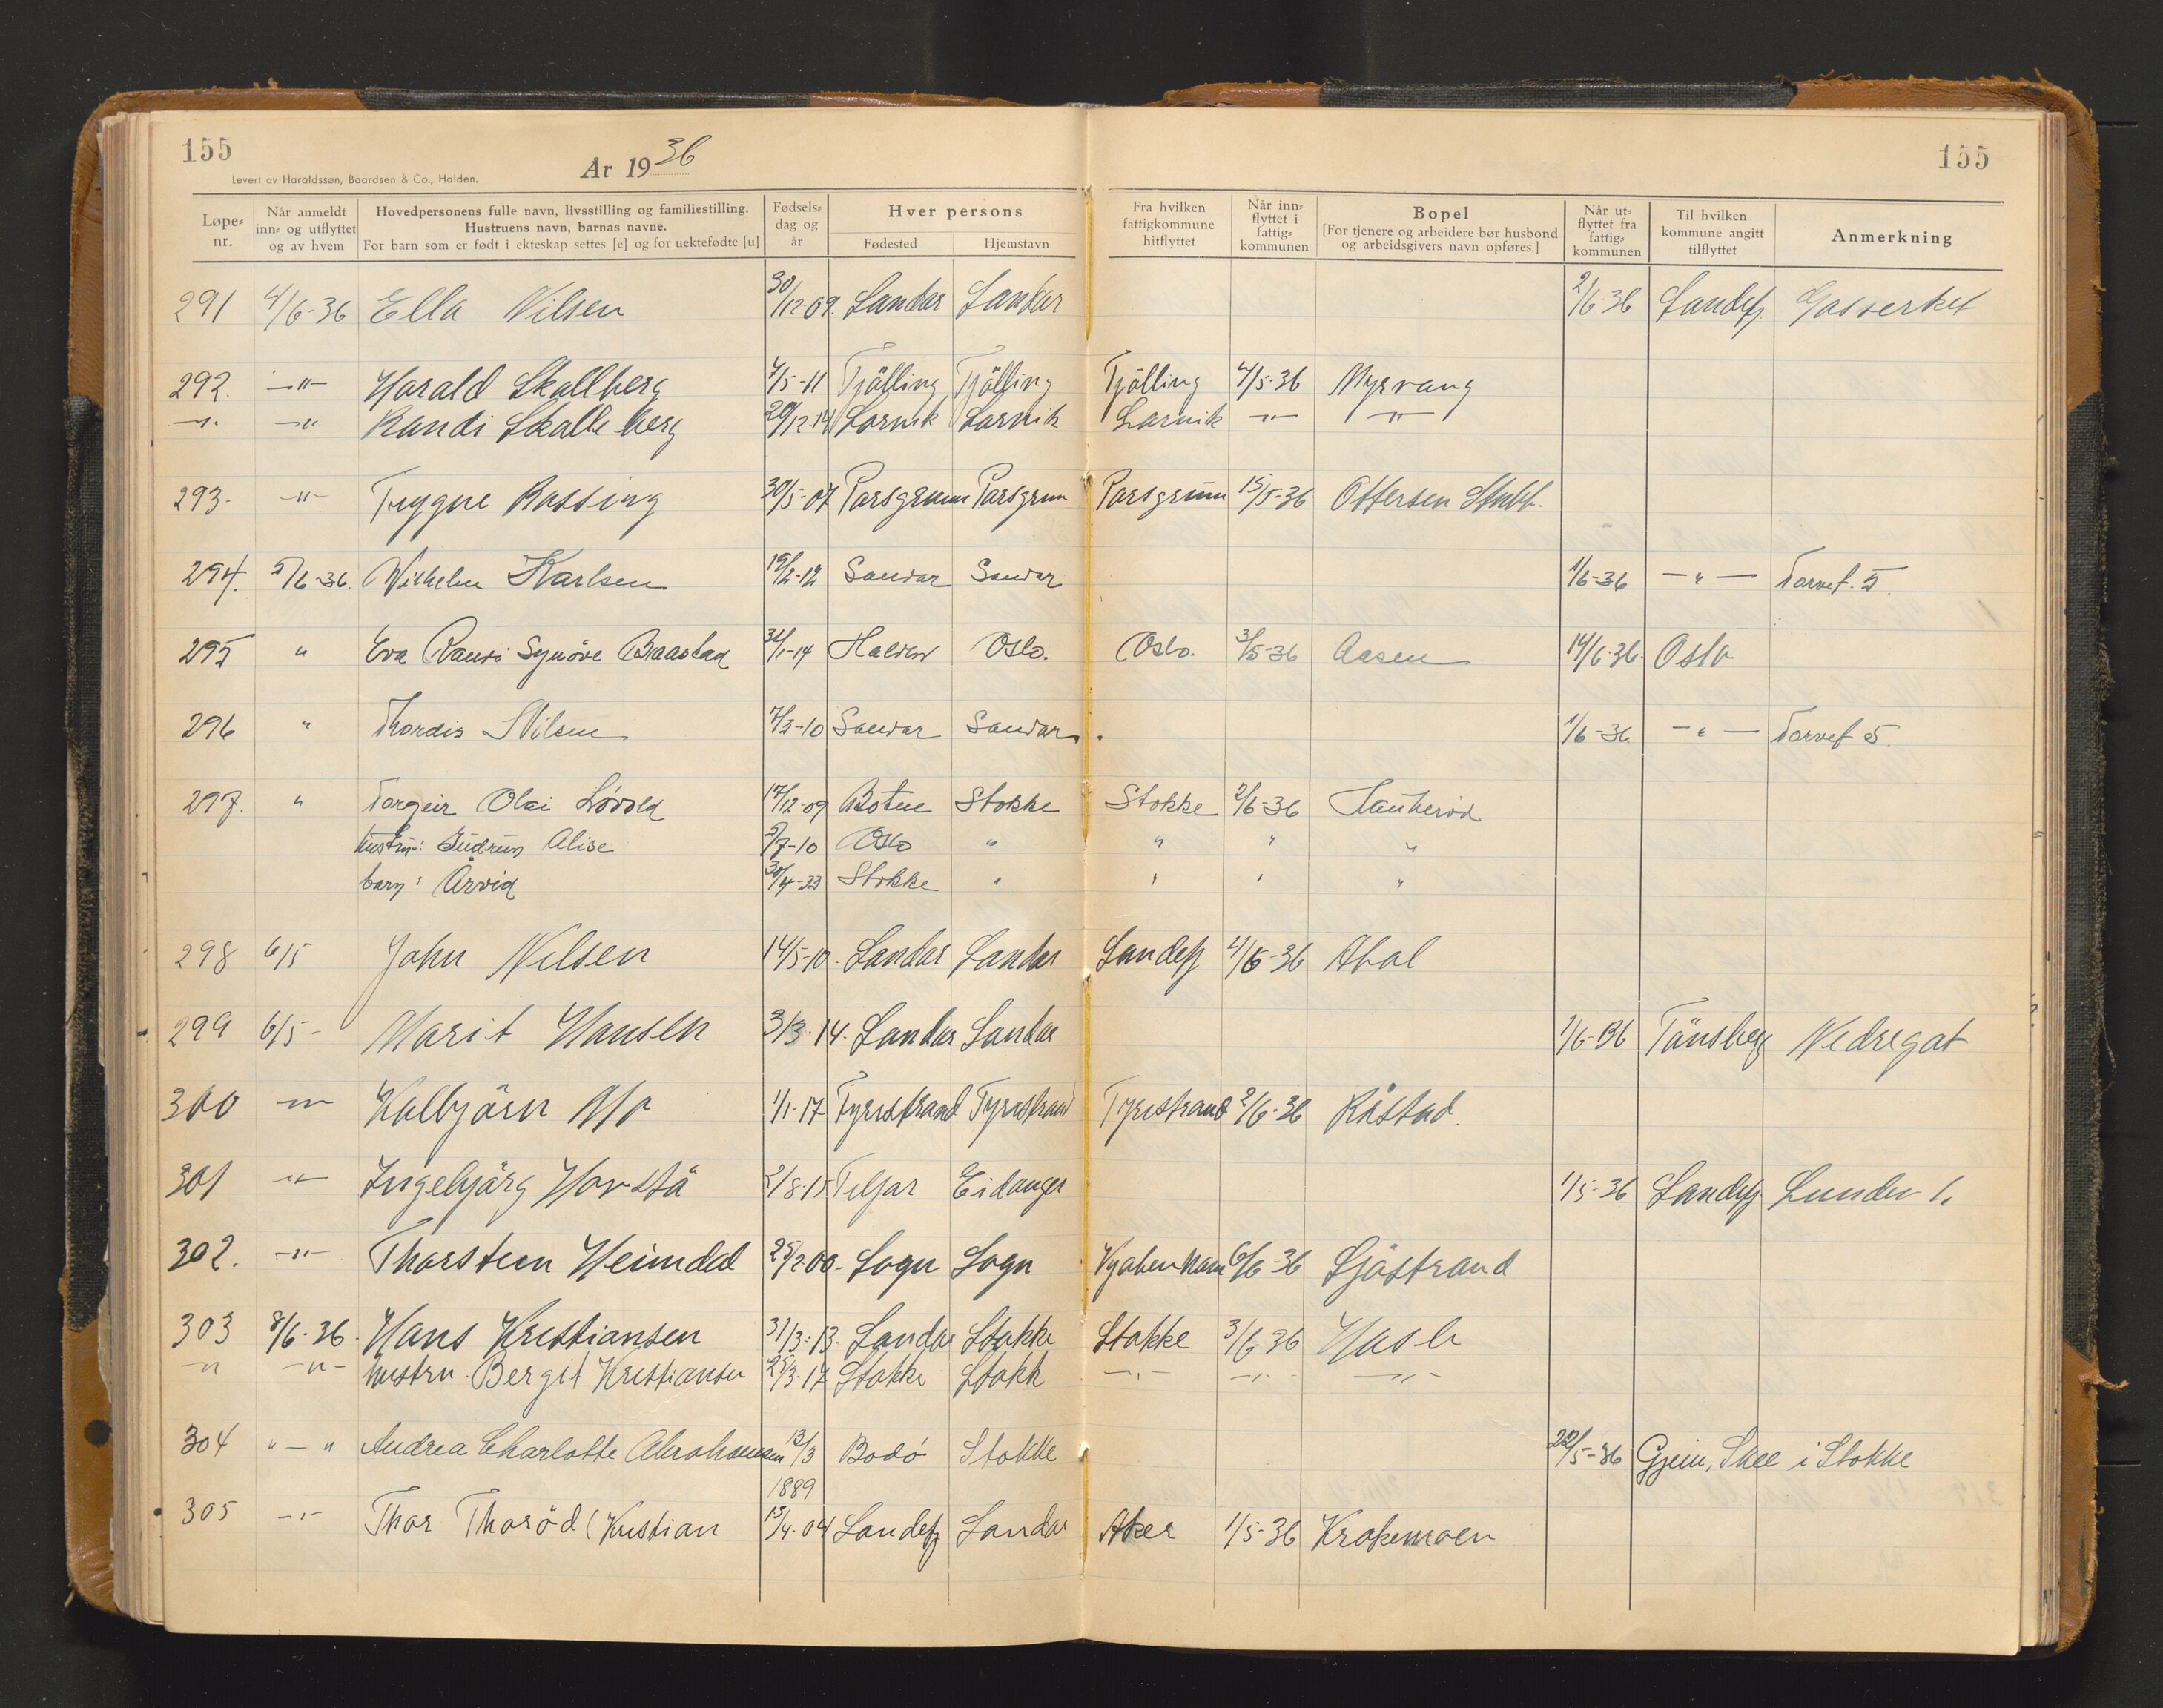 155
År 1936
155
Levert av Haraldssøn, Baardsen & Co., Halden.
Løpe-nr. Når anmeldt inn- og utflyttet og av hvem Hovedpersonens fulle navn, livsstilling og familiestilling. Hustruens navn, barnas navne. For barn som er født i ekteskap settes [e] og for uektefødte [u] Fødselsdag og år Hver persons Fødested Hjemstavn Fra hvilken fattigkommune hitflyttet Når innflyttet i fattigkommunen Bopel [For tjenere og arbeidere bør husbond og arbeidsgivers navn opføres.] Når utflyttet fra fattigkommunen Til hvilken kommune angitt tilflyttet Anmerkning
291 4/6-36 Ella Nilsen 30/12-09. Sandar Sandar 2/6-36 Sandefj Gasverket
292. -"- Harald Skallberg 7/5-11 Tjölling Tjölling Tjölling 4/5-36 Myrvang
-"- -"- Randi Skalleberg 20/12-14 Larvik Larvik Larvik -"- -"-
293- -"- Trygve Rassing 30/5-07 Porsgrunn Porsgrun Porsgrunn 15/5-36 Ottersen Stubb.
294. 5/6-36. Wilhelm Karlsen 19/2-12 Sandar Sandar 1/6-36 -"- Torvet. 5.
295 " Eva Randi Synöve Braastad 31/1-14 Halden Oslo. Oslo. 3/5-36 Aasen 14/6-36. Oslo
296 " Thordis Nilsen 7/3-10 Sandar Sandar. 1/6-36 -"- Torvet 5.
297. " Torgeir Olai Lövold 17/12-09 Botne Stokke Stokke 2/6-36 Haukeröd
hustru: Gudrun Alise 5/7-10 Oslo " " " "
barn: Arvid 30/4-33 Stokke " " " "
298 6/5 John Nilsen 14/5-10. Sandar Sandar Sandefj 4/6-36
299 6/5- Marit Hansen 3/3-14. Sandar Sandar 1/6-36 Tönsberg Nedregat
300 -"- Kolbjörn Mo 1/1-17 Tyristrand Tyristrand Tyristrand 2/6-36 Råstad.
301 -"- Ingebjörg 2/8-15 Eidanger 1/5-36 Sandefj Lunden 1.
302. -"- Thorsteen Heimdal 25/2 00- Sogn Sogn Kjøbenhavn 6/6-36 Sjöstrand
303 8/6-36. Hans Kristiansen 31/3-13. Sandar Stokke Stokke 3/6-36 Hasle
-"- -"- hustru Bergit Kristiansen 25/3-17 Stokke Stokk -"- -"- -"-
304 "-" Andrea Charlotte Abrahamsen 13/3 1889 Bodö Stokke 22/5-36 Gjein, Skee i Stokke
305 -"- Thor Thoröd (Kristian 13/4-04 Sandefj Sandar Aker 1/5-36 Krokemoen